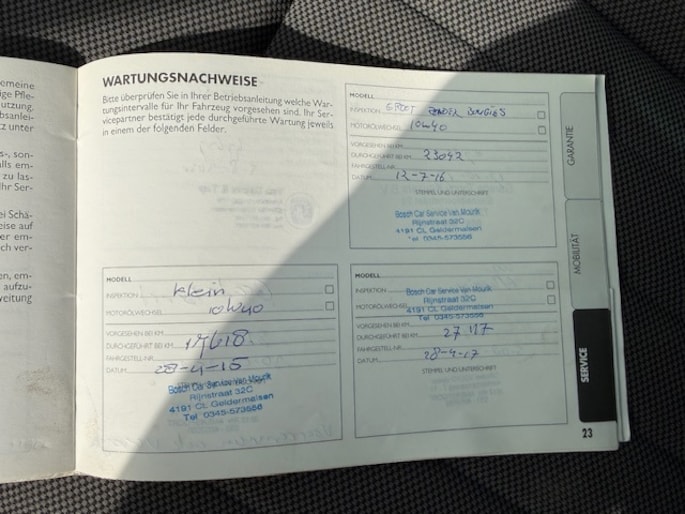 gemeine
ige Pfle-
utzung.
bsanlei-
tz unter
s-, son-
alls em-
zu las-
Ihr Ser-
ei Schä-
eise auf
er em-
ch ver-
en, em-
aufzu-
veitung
WARTUNGSNACHWEISE
Bitte überprüfen Sie in Ihrer Betriebsanleitung welche War-
tungsintervalle für Ihr Fahrzeug vorgesehen sind. Ihr Ser-
vicepartner bestätigt jede durchgeführte Wartung jeweils
in einem der folgenden Felder.
MODELL
INSPEKTION GROOT ZONDER BOUGIES
MOTORÖLWECHSEL 10W40
VORGESEHEN BEI KM
DURCHGEFÜHRT BEI KM 23042
FAHRGESTELL-NR.
DATUM 12-7-16
STEMPEL UND UNTERSCHRIFT
Bosch Car Service Van Mourik
Rijnstraat 32C
4191 CL Geldermalsen
Tel 0345-573556
MODELL
INSPEKTION Klein
MOTORÖLWECHSEL 10W40
VORGESEHEN BEI KM
DURCHGEFÜHRT BEI KM
FAHRGESTELL-NR.
DATUM 28-4-15
Bosch Car Service Van Mourik
Rijnstraat 32C
4191 CL Geldermalsen
Tel 0345-573556
MODELL
INSPEKTION
MOTORÖLWECHSEL
Bosch Car Service Van Mourik
Rijnstraat 32C
4191 CL Geldermalsen
Tel 0345-573556
VORGESEHEN BEI KM
DURCHGEFÜHRT BEI KM
FAHRGESTELL-NR.
DATUM 28-4-17
STEMPEL UND UNTERSCHRIFT
GARANTIE
MOBILITÄT
SERVICE
23